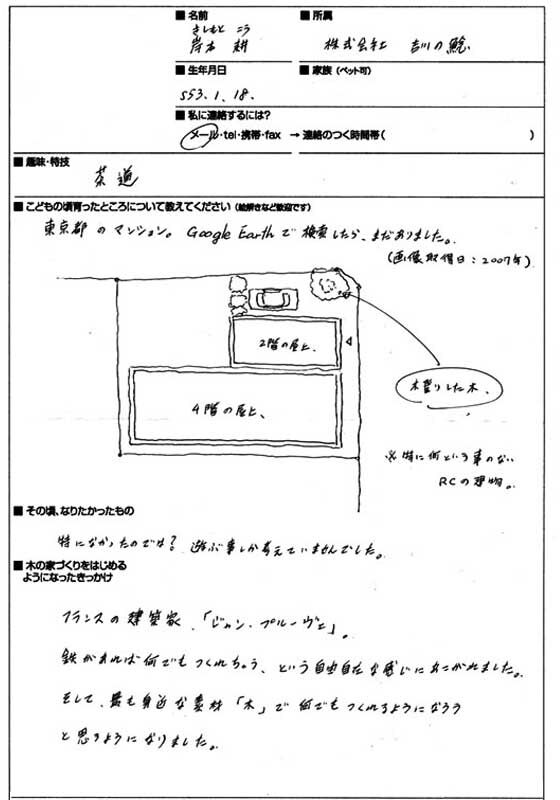 ■ 名前
きしもと こう
岸本 耕
■ 所属
株式会社 吉川の鯰
■ 生年月日
S53.1.18.
■ 家族（ペット可）
■ 私に連絡するには？
メール・tel・携帯・fax → 連絡のつく時間帯( )
■ 趣味・特技
茶道
■ こどもの頃育ったところについて教えてください（絵解きなど歓迎です）
東京都のマンション。Google Earthで検索したら、まだありました。
(画像取得日：2007年)
2階の屋上、
4階の屋上、
木登りした木、
※特に何という事のない
RCの建物。
■ その頃、なりたかったもの
特になかったのでは？ 遊ぶ事しか考えていませんでした。
■ 木の家づくりをはじめる
ようになったきっかけ
フランスの建築家、「ジャン・プルーヴェ」。
鉄があれば何でもつくれちゃう、という自由自在な感じにあこがれました。
そして、最も身近な素材「木」で何でもつくれるようになろう
と思うようになりました。